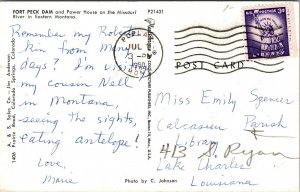 FORT PECK DAM and Power House on the Missouri
River in Eastern Montana.
P21431
Remember my Robert
kin from many
days? I'm visiting
my cousin Nell
in Montana,
seeing the sights,
eating antelope!
Love,
Marie
POPLAR
JUL
PM
1960
MONT.
3¢
POST CARD
Miss Emily Spencer
Calcasieu Parish
Library
413 S. Ryan
Lake Charles
Louisiana
Photo by C. Johnson